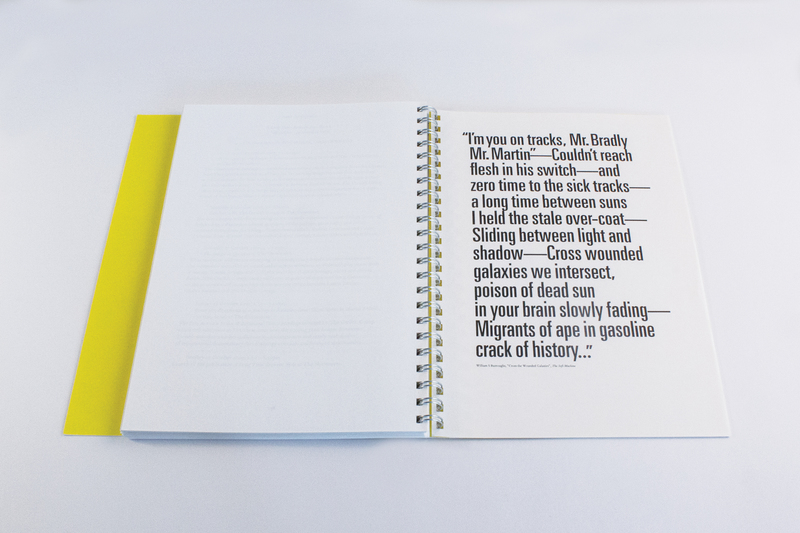 “I’m you on tracks, Mr. Bradly
Mr. Martin”—Couldn’t reach
flesh in his switch—and
zero time to the sick tracks—
a long time between suns
I held the stale over-coat—
Sliding between light and
shadow—Cross wounded
galaxies we intersect,
poison of dead sun
in your brain slowly fading—
Migrants of ape in gasoline
crack of history...”
William S Burroughs, “Cross the Wounded Galaxies”, The Soft Machine